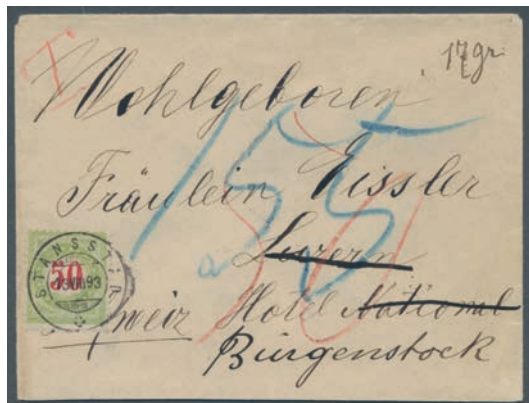 T
17gr.
Wohlgeboren
Fräulein Eissler
Luzern
Schweiz Hotel National
Bürgenstock
155
50
STANSSTAD
50
13VII93